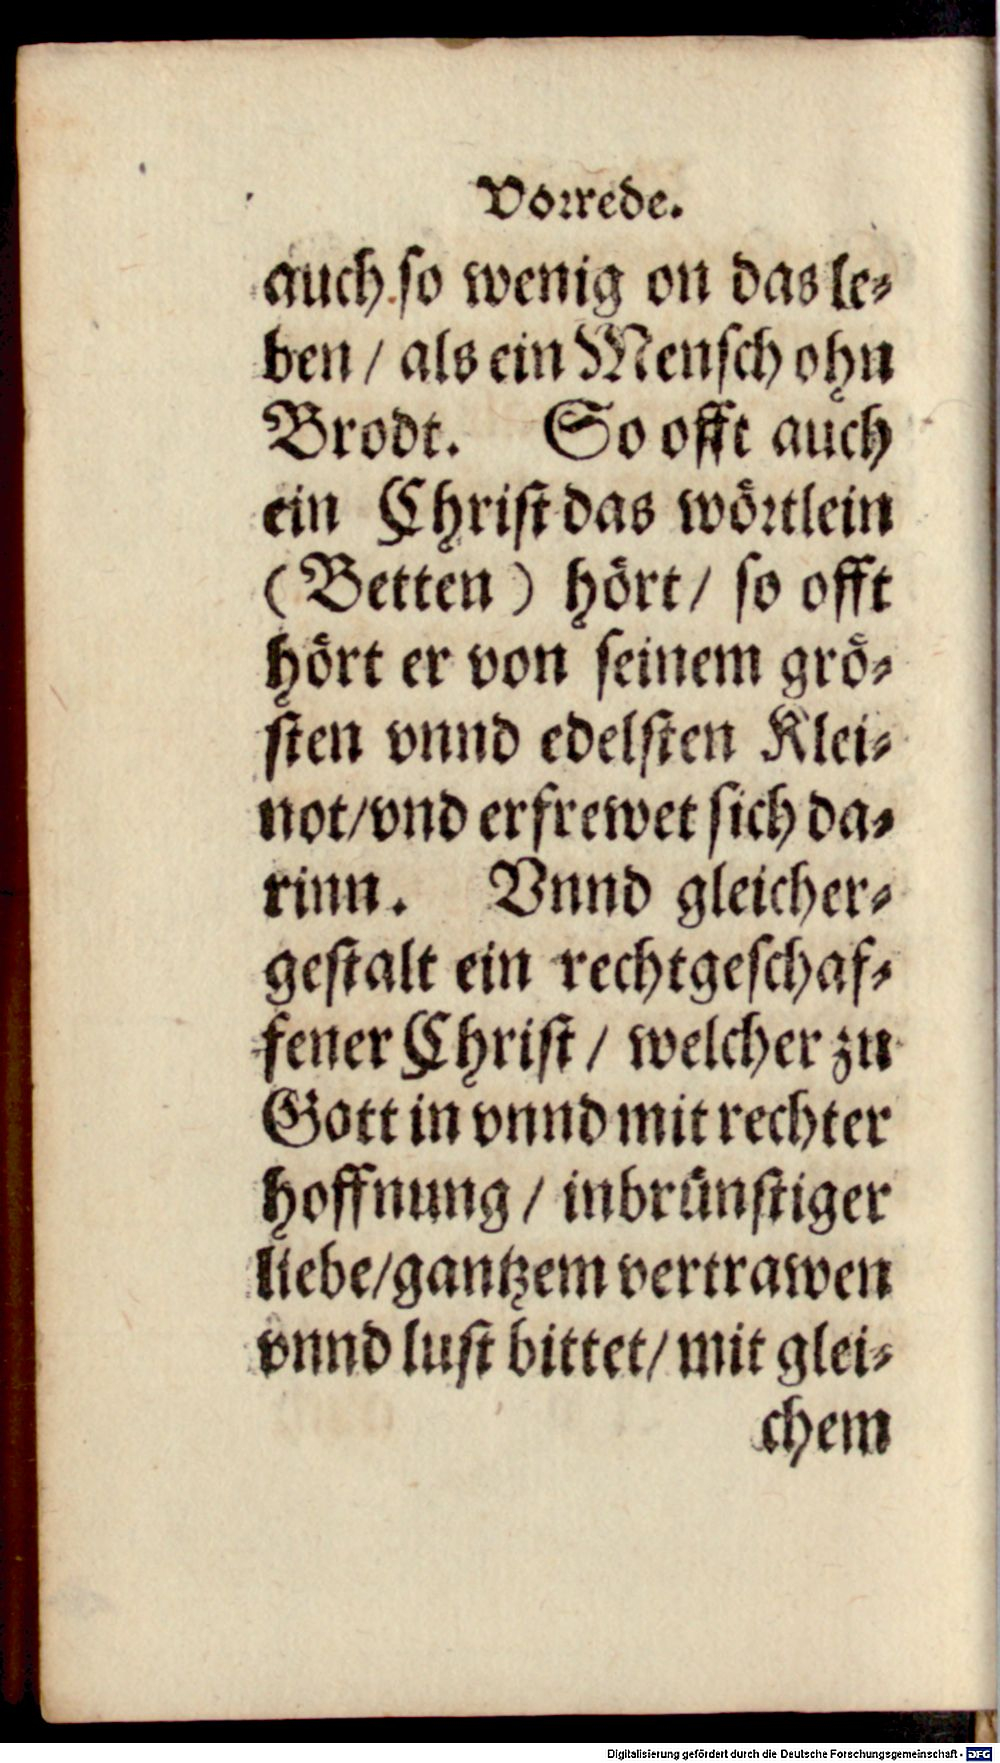 Vorrede.
auch so wenig on das le⸗
ben / als ein Menſch ohn
Brodt. So offt auch
ein Chriſt das woͤrtlein
(Betten) hoͤrt / ſo offt
hoͤrt er von ſeinem groͤ⸗
ſten vnnd edelſten Klei⸗
not / vnd erfrewet ſich da⸗
rinn. Vnnd gleicher⸗
geſtalt ein rechtgeſchaf⸗
fener Chriſt / welcher zu
Gott in vnnd mit rechter
hoffnung / inbruͤnſtiger
liebe / gantzem vertrawen
vnnd luſt bittet / mit glei⸗
chem
Digitalisierung gefördert durch die Deutsche Forschungsgemeinschaft - DFG